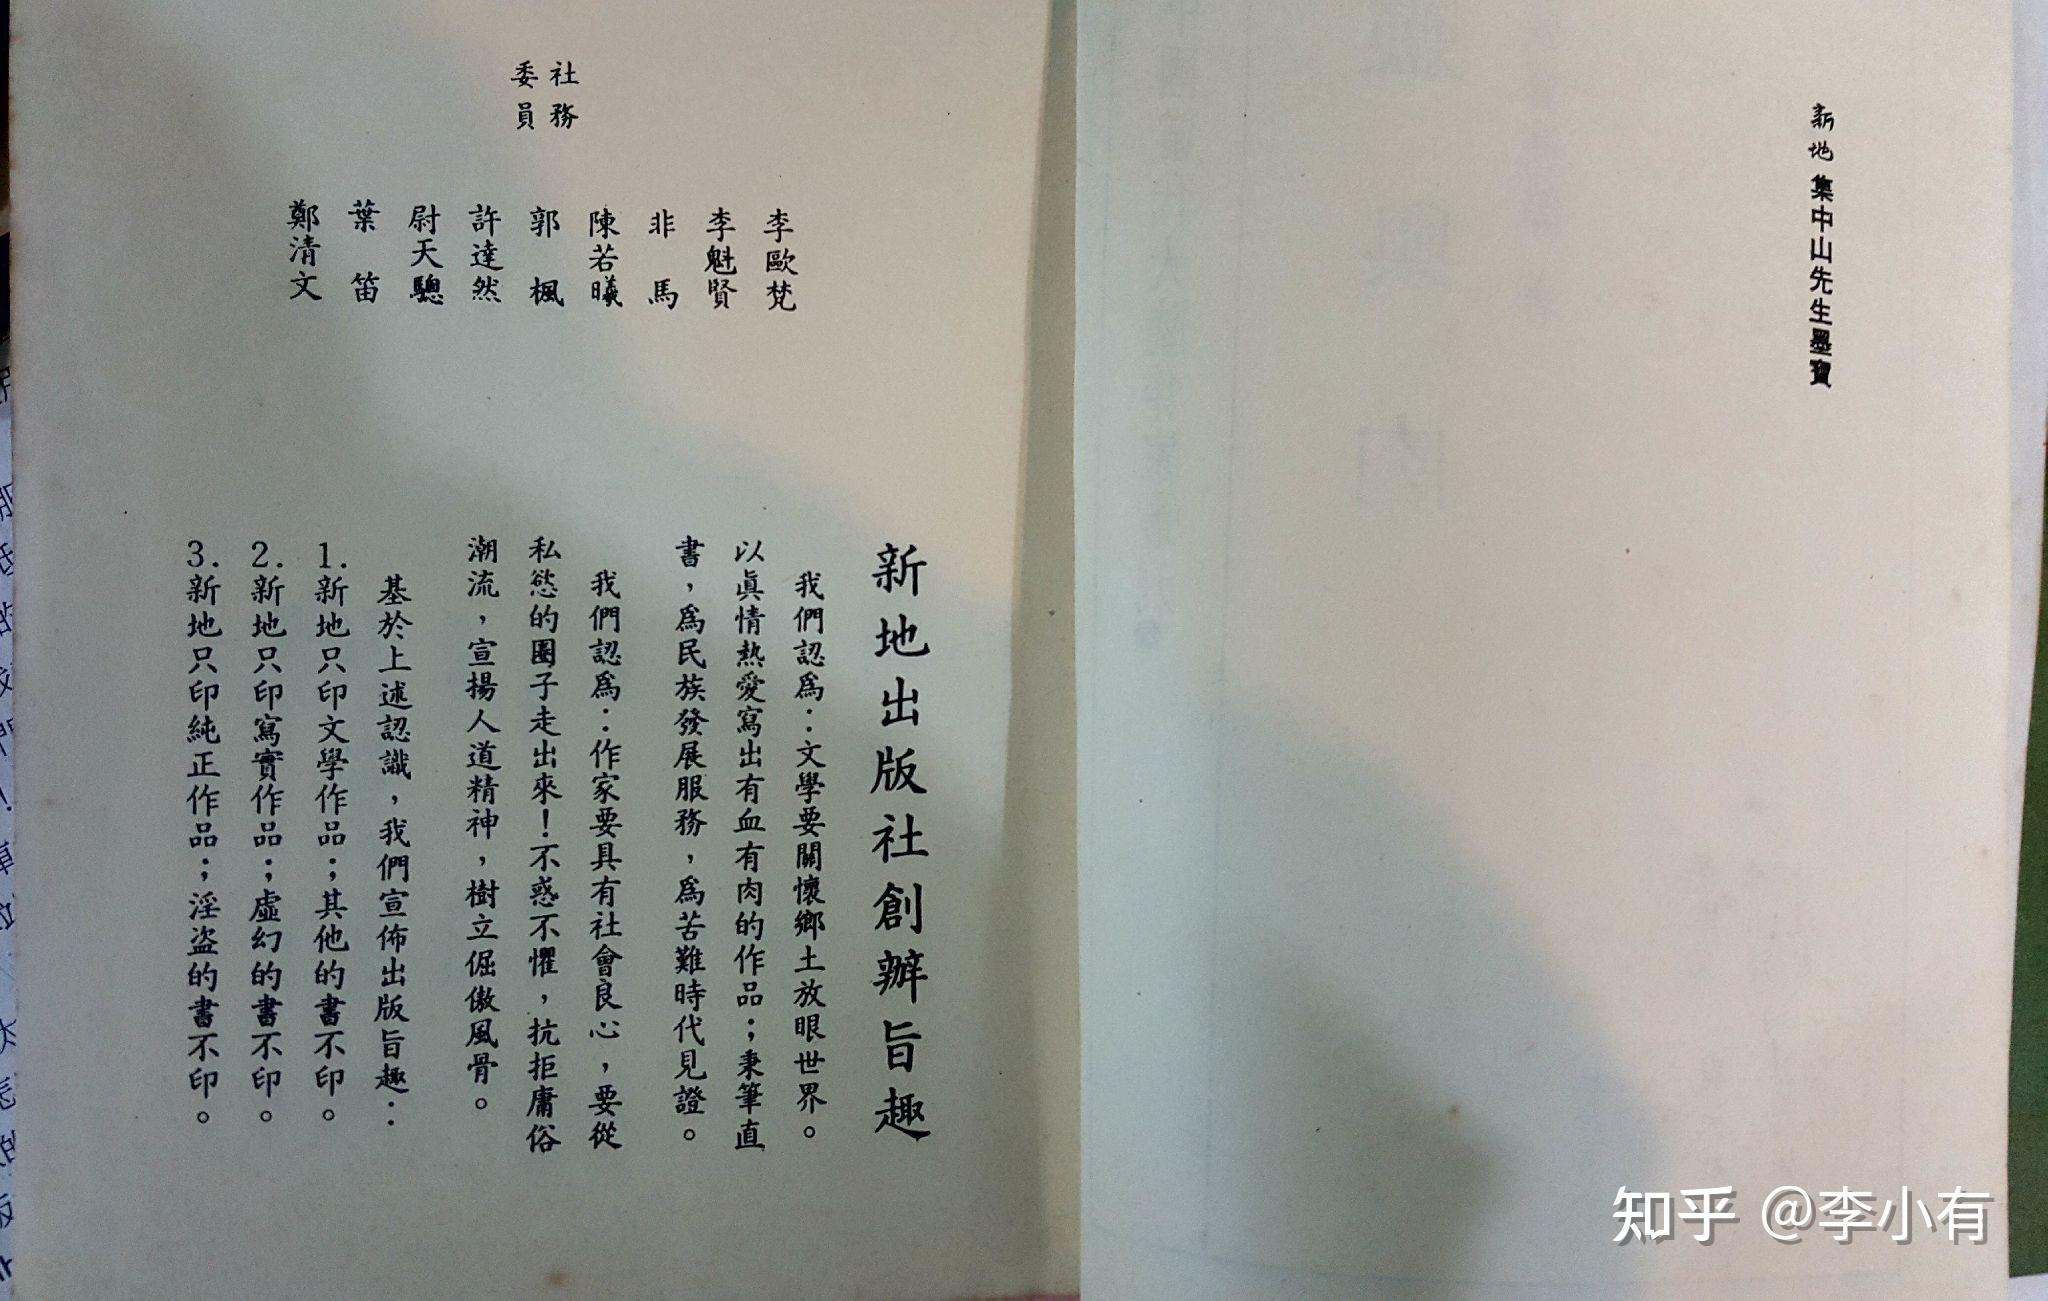 新地 集中山先生墨寶
新地出版社創辦旨趣
我們認爲：文學要關懷鄉土放眼世界。
以眞情熱愛寫出有血有肉的作品；秉筆直
書，爲民族發展服務，爲苦難時代見證。
我們認爲：作家要具有社會良心，要從
私慾的圈子走出來！不惑不懼，抗拒庸俗
潮流，宣揚人道精神，樹立倔傲風骨。
基於上述認識，我們宣佈出版旨趣：
1.新地只印文學作品；其他的書不印。
2.新地只印寫實作品；虛幻的書不印。
3.新地只印純正作品；淫盜的書不印。
社務
委員
李歐梵
李魁賢
非馬
陳若曦
郭楓
許達然
尉天驄
葉笛
鄭清文
知乎 @李小有